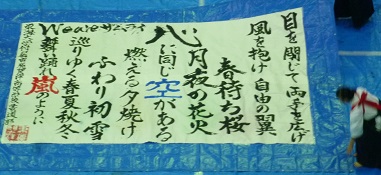 目を閉じて両手を広げ
風を抱け自由の翼
春待ち桜
月夜の花火
心に同じ空がある
燃える夕焼け
ふわり初雪
巡りゆく春夏秋冬
舞い踊れ嵐のように